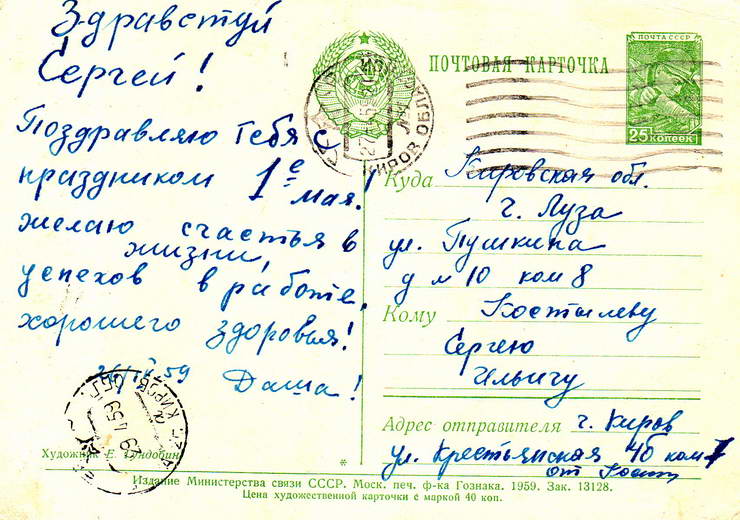 Здравствуй
Сергей!
Поздравляю тебя с
праздником 1е мая!
желаю счастья в
жизни,
успехов в работе,
хорошего здоровья!
26/IV 59 Даша!
Художник Е. Гундобин
ПОЧТОВАЯ КАРТОЧКА
ПОЧТА СССР
25 КОПЕЕК
КИРОВ ОБЛ
Куда Кировская обл.
г. Луза
ул. Пушкина
д № 10 ком 8
Кому Костылеву
Сергею
Ильичу
Адрес отправителя г. Киров
ул. Крестьянская 4б ком 7
от
Издание Министерства связи СССР. Моск. печ. ф-ка Гознака. 1959. Зак. 13128.
Цена художественной карточки с маркой 40 коп.